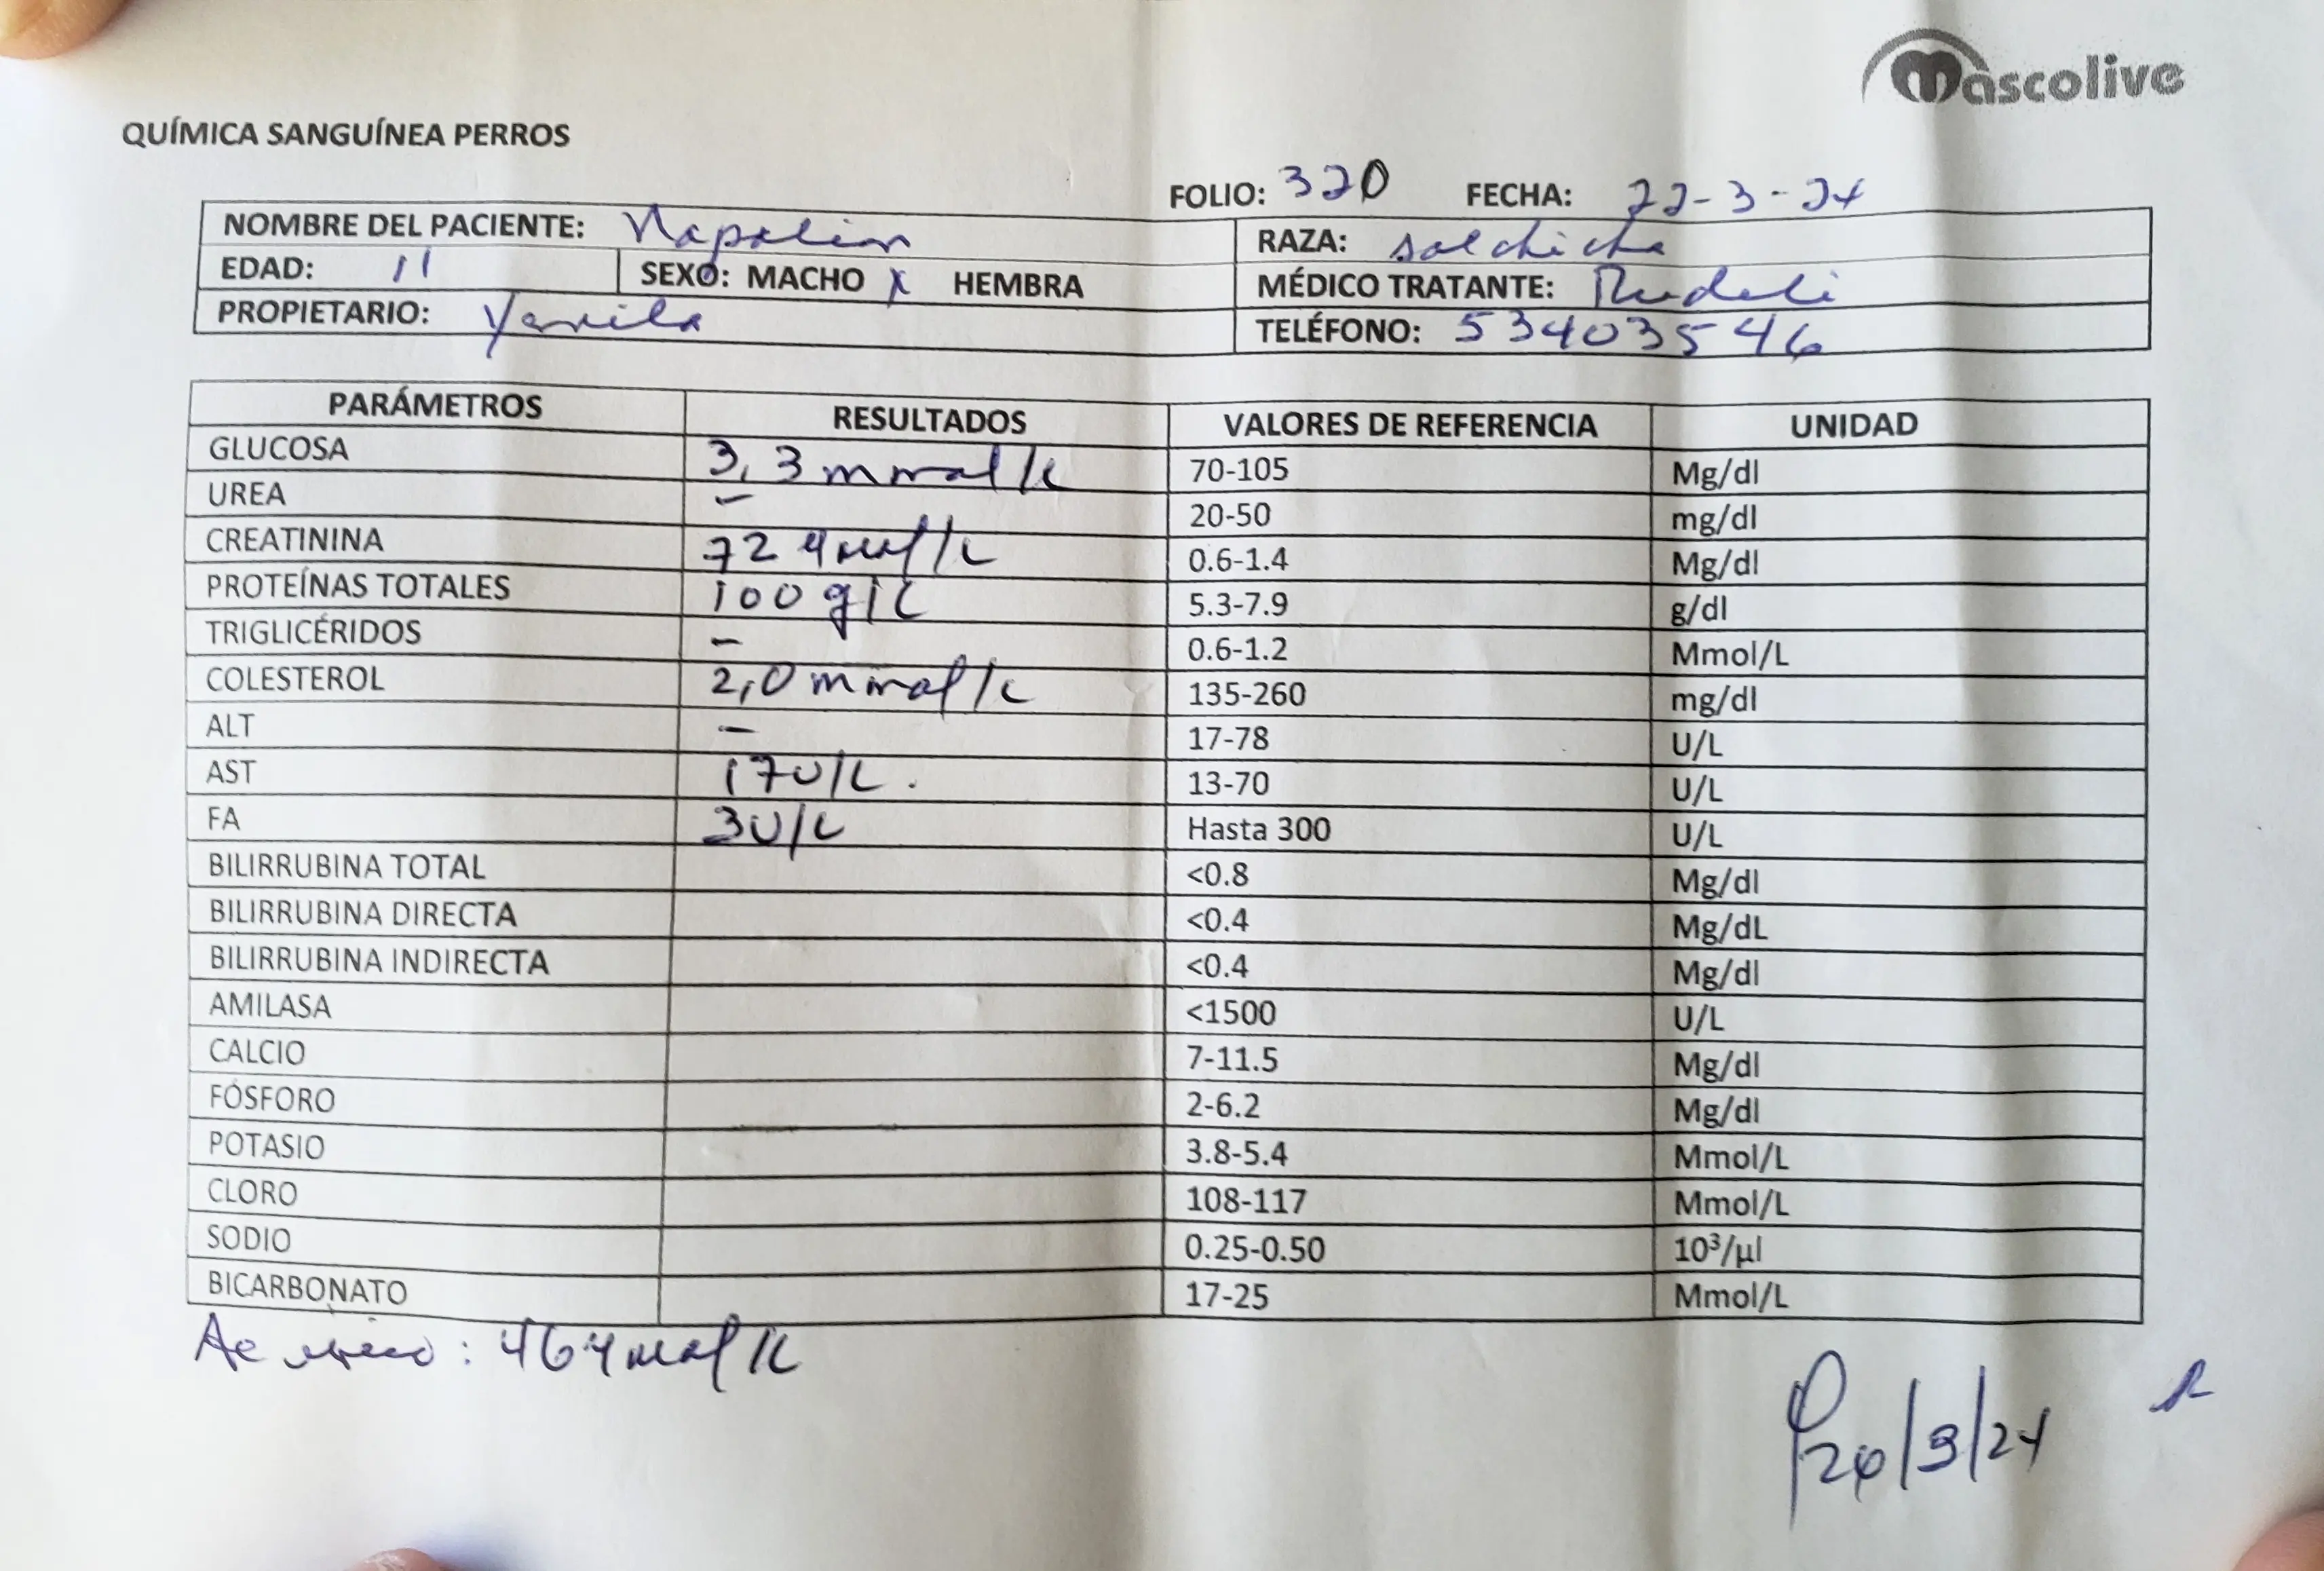 Mascolive
QUÍMICA SANGUÍNEA PERROS
FOLIO: 320 FECHA: 22-3-24
NOMBRE DEL PACIENTE: Napolion RAZA: salchicha
EDAD: 11 SEXO: MACHO X HEMBRA MÉDICO TRATANTE:
PROPIETARIO: TELÉFONO: 53403546
PARÁMETROS RESULTADOS VALORES DE REFERENCIA UNIDAD
GLUCOSA 3,3 mmol/L 70-105 Mg/dl
UREA - 20-50 mg/dl
CREATININA 72 µmol/L 0.6-1.4 Mg/dl
PROTEÍNAS TOTALES 100 g/L 5.3-7.9 g/dl
TRIGLICÉRIDOS - 0.6-1.2 Mmol/L
COLESTEROL 2,0 mmol/L 135-260 mg/dl
ALT - 17-78 U/L
AST 17U/L. 13-70 U/L
FA 3U/L Hasta 300 U/L
BILIRRUBINA TOTAL <0.8 Mg/dl
BILIRRUBINA DIRECTA <0.4 Mg/dL
BILIRRUBINA INDIRECTA <0.4 Mg/dl
AMILASA <1500 U/L
CALCIO 7-11.5 Mg/dl
FÓSFORO 2-6.2 Mg/dl
POTASIO 3.8-5.4 Mmol/L
CLORO 108-117 Mmol/L
SODIO 0.25-0.50 10³/µl
BICARBONATO 17-25 Mmol/L
Ac urico: 46 µmol/L
/3/24